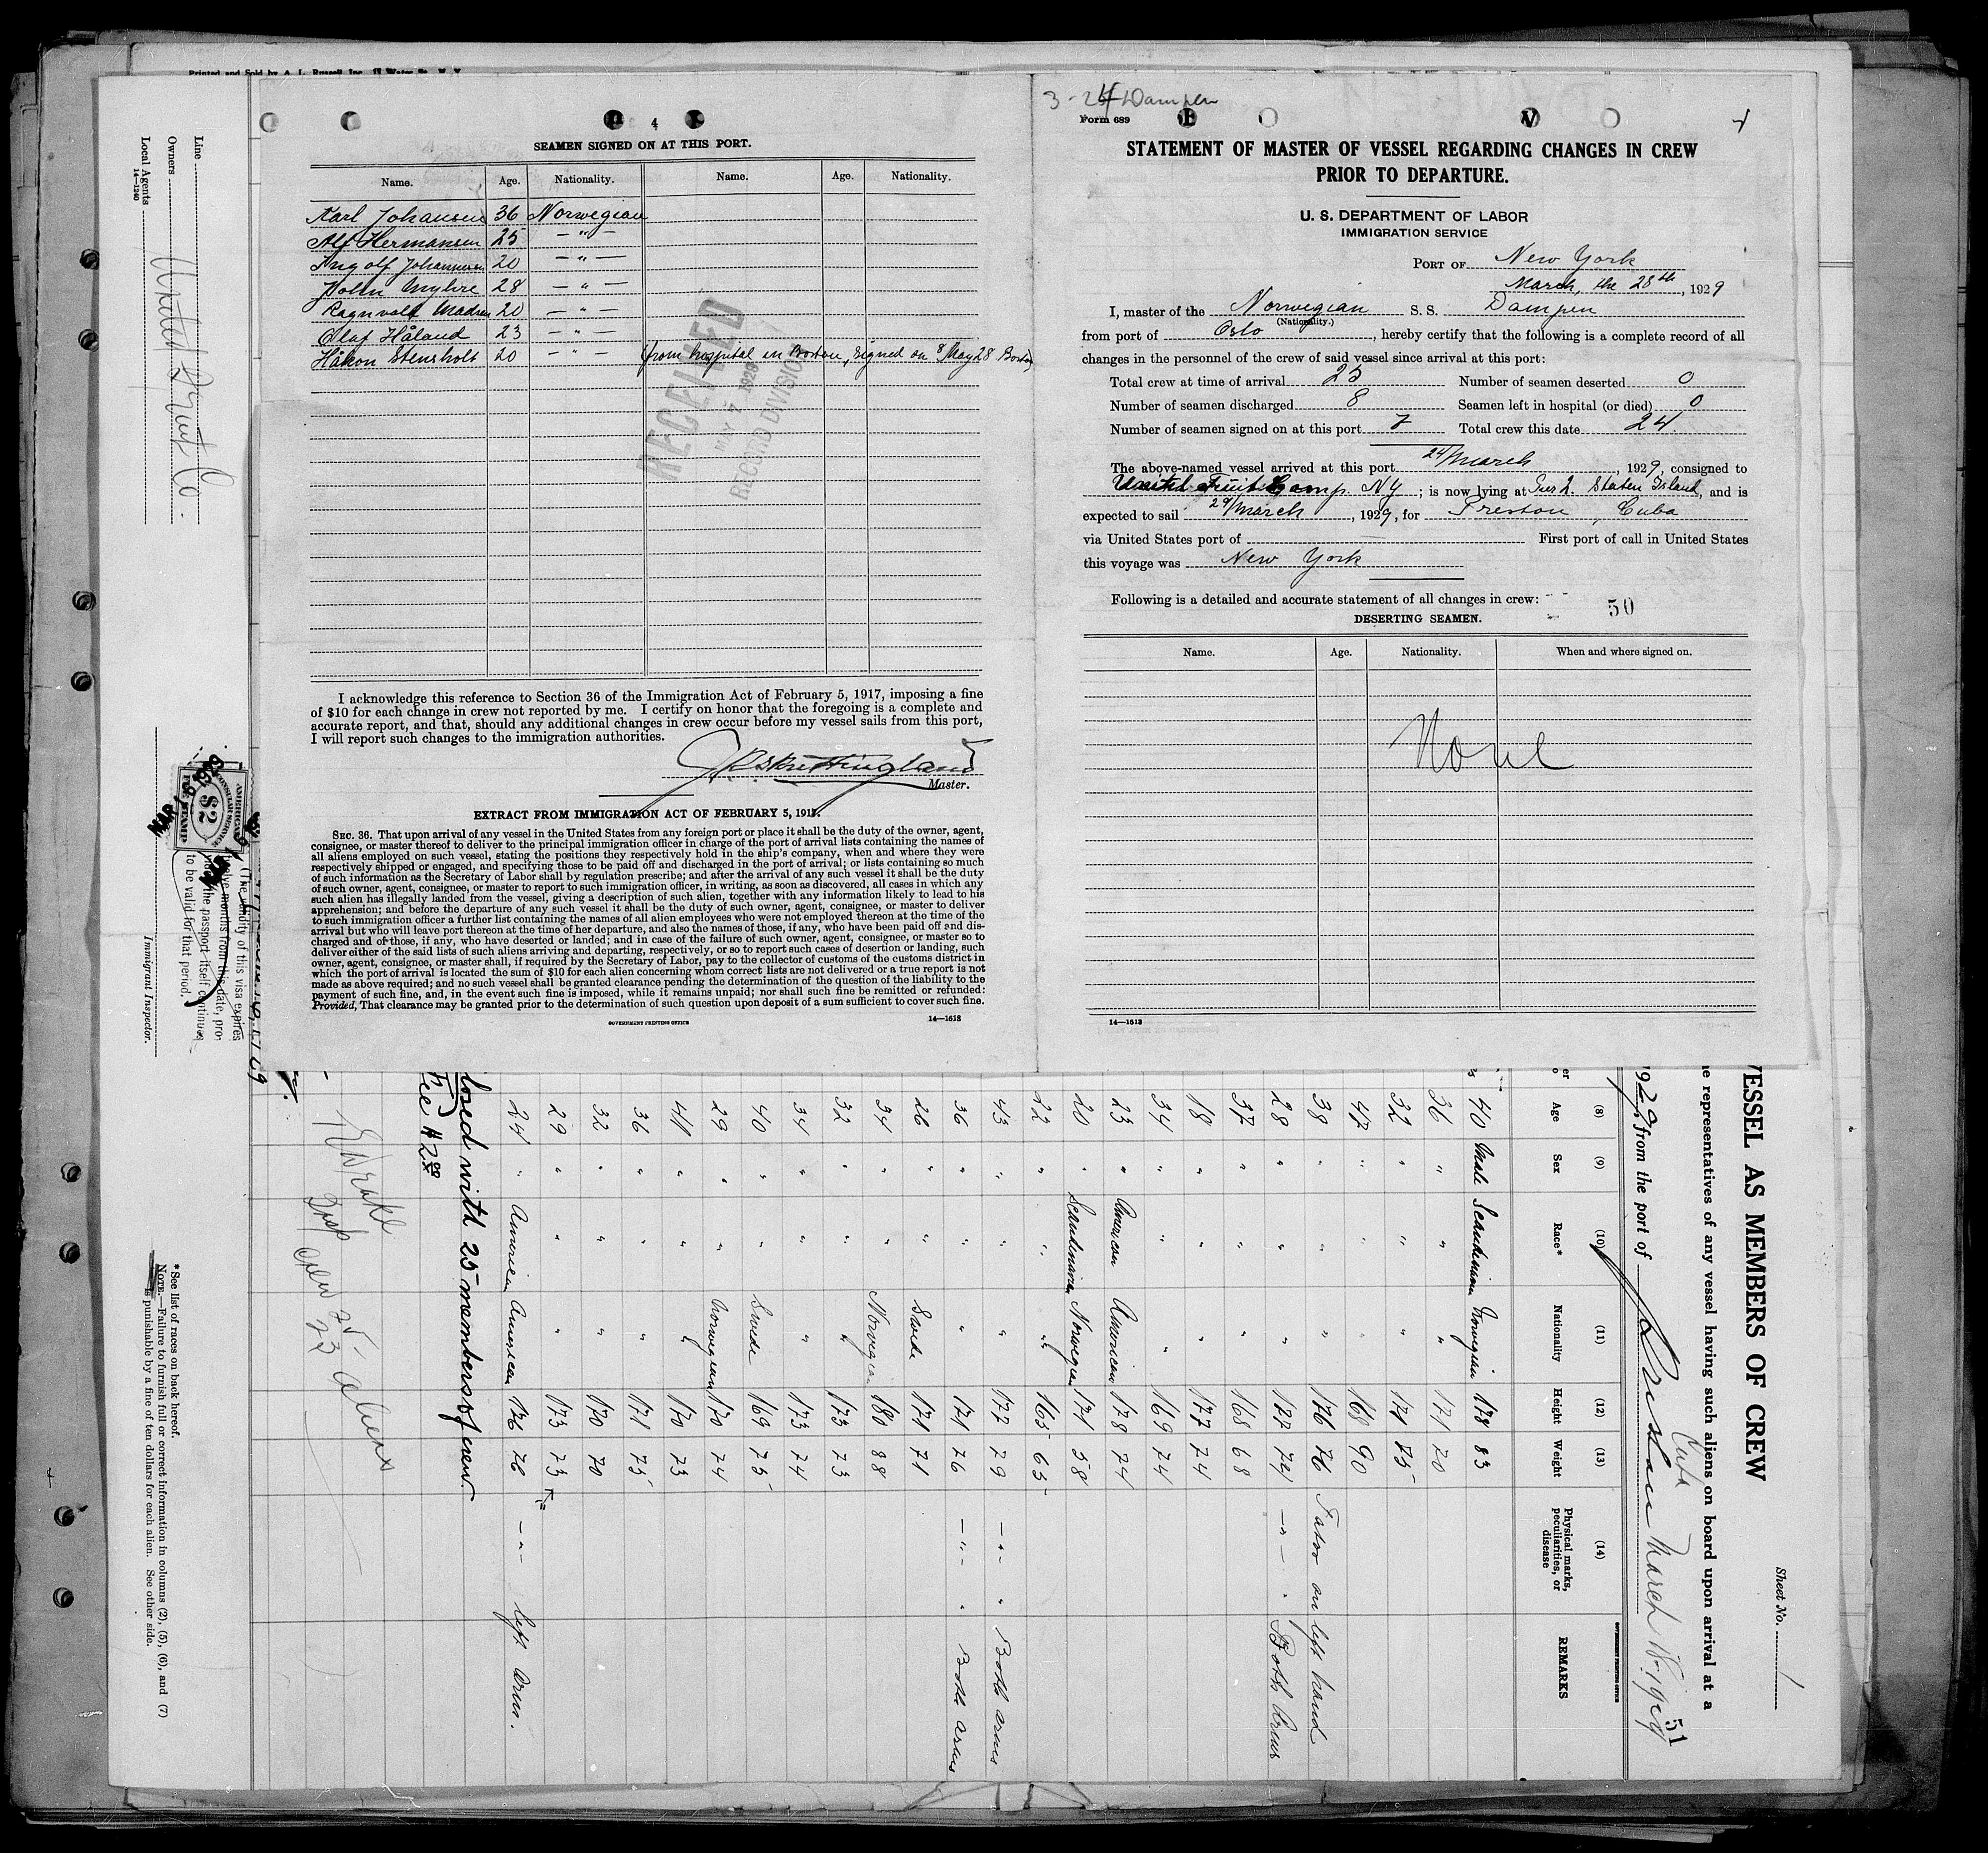 Printed and Sold by A. L. Russell Inc. 11 Water St. N. Y.
4
SEAMEN SIGNED ON AT THIS PORT.
Name. Age. Nationality. Name. Age. Nationality.
Karl Johansen 36 Norwegian
Alf Hermansen 25 — " —
Ingolf Johannesen 20 — " —
John Myhre 28 — " —
Ragnvald Madsen 20 — " —
Olaf Håland 23 — " —
Håkon Stensholt 20 — " — from hospital in Boston, signed on 8 May 28 Boston
RECEIVED
MAY 2 1929
RECORD DIVISION
I acknowledge this reference to Section 36 of the Immigration Act of February 5, 1917, imposing a fine
of $10 for each change in crew not reported by me. I certify on honor that the foregoing is a complete and
accurate report, and that, should any additional changes in crew occur before my vessel sails from this port,
I will report such changes to the immigration authorities.
Master.
EXTRACT FROM IMMIGRATION ACT OF FEBRUARY 5, 1917.
SEC. 36. That upon arrival of any vessel in the United States from any foreign port or place it shall be the duty of the owner, agent,
consignee, or master thereof to deliver to the principal immigration officer in charge of the port of arrival lists containing the names of
all aliens employed on such vessel, stating the positions they respectively hold in the ship's company, when and where they were
respectively shipped or engaged, and specifying those to be paid off and discharged in the port of arrival; or lists containing so much
of such information as the Secretary of Labor shall by regulation prescribe; and after the arrival of any such vessel it shall be the duty
of such owner, agent, consignee, or master to report to such immigration officer, in writing, as soon as discovered, all cases in which any
such alien has illegally landed from the vessel, giving a description of such alien, together with any information likely to lead to his
apprehension; and before the departure of any such vessel it shall be the duty of such owner, agent, consignee, or master to deliver
to such immigration officer a further list containing the names of all alien employees who were not employed thereon at the time of the
arrival but who will leave port thereon at the time of her departure, and also the names of those, if any, who have been paid off and dis-
charged and of those, if any, who have deserted or landed; and in case of the failure of such owner, agent, consignee, or master so to
deliver either of the said lists of such aliens arriving and departing, respectively, or so to report such cases of desertion or landing, such
owner, agent, consignee, or master shall, if required by the Secretary of Labor, pay to the collector of customs of the customs district in
which the port of arrival is located the sum of $10 for each alien concerning whom correct lists are not delivered or a true report is not
made as above required; and no such vessel shall be granted clearance pending the determination of the question of the liability to the
payment of such fine, and, in the event such fine is imposed, while it remains unpaid; nor shall such fine be remitted or refunded:
Provided, That clearance may be granted prior to the determination of such question upon deposit of a sum sufficient to cover such fine.
GOVERNMENT PRINTING OFFICE 14—1613
3-24 Dampen
Form 689
STATEMENT OF MASTER OF VESSEL REGARDING CHANGES IN CREW
PRIOR TO DEPARTURE.
U. S. DEPARTMENT OF LABOR
IMMIGRATION SERVICE
PORT OF New York
March, the 28th, 1929
I, master of the Norwegian S. S. Dampen
(Nationality.)
from port of Oslo, hereby certify that the following is a complete record of all
changes in the personnel of the crew of said vessel since arrival at this port:
Total crew at time of arrival 25 Number of seamen deserted 0
Number of seamen discharged 8 Seamen left in hospital (or died) 0
Number of seamen signed on at this port 7 Total crew this date 24
The above-named vessel arrived at this port 24/March, 1929, consigned to
United Fruit Comp. NY; is now lying at Pier 2. Staten Island, and is
expected to sail 29/March, 1929, for Preston, Cuba
via United States port of First port of call in United States
this voyage was New York
Following is a detailed and accurate statement of all changes in crew:
50
DESERTING SEAMEN.
Name. Age. Nationality. When and where signed on.
None
14—1613
Sheet No. 1
51
VESSEL AS MEMBERS OF CREW
e representatives of any vessel having such aliens on board upon arrival at a
1929, from the port of Preston Cuba March 18-1929
(8) (9) (10) (11) (12) (13) (14)
Age Sex Race* Nationality Height Weight Physical marks, peculiarities, or disease REMARKS
GOVERNMENT PRINTING OFFICE
40 Male Scandinavian Norwegian 178 83
36 " " " 171 70
32 " " " 171 75
42 " " " 168 90
38 " " " 176 76 Tatoo on left hand
28 " " " 172 74 — " — " Both Arms
37 " " " 168 68
18 " " " 177 74
34 " " " 169 74
23 " American American 178 74
20 " Scandinavian Norwegian 171 58
22 " " " 165 65
43 " " " 177 79 — " — " Both arms
36 " " " 171 76 — " — " Both arms
26 " " Swede 171 71
34 " " Norwegian 180 88
32 " " " 173 73
34 " " " 173 74
40 " " Swede 169 75
29 " " Norwegian 170 74
41 " " " 170 73
36 " " " 171 75
32 " " " 170 70
29 " " " 173 73
24 " American American 176 76 — " — left Arm.
losed with 25 members of crew.
Fee $2.00
Crew 25
23
*See list of races on back hereof.
NOTE.—Failure to furnish full or correct information in columns (2), (5), (6), and (7)
is punishable by a fine of ten dollars for each alien. See other side.
(The validity of this visa expires
twelve months from this date, pro-
vided the passport itself continues
to be valid for that period.
AMERICAN
CONSULAR SERVICE
$2
FEE STAMP
MAR 19 1929
Immigrant Inspector.
Line
Owners United Fruit Co.
Local Agents
14—1240